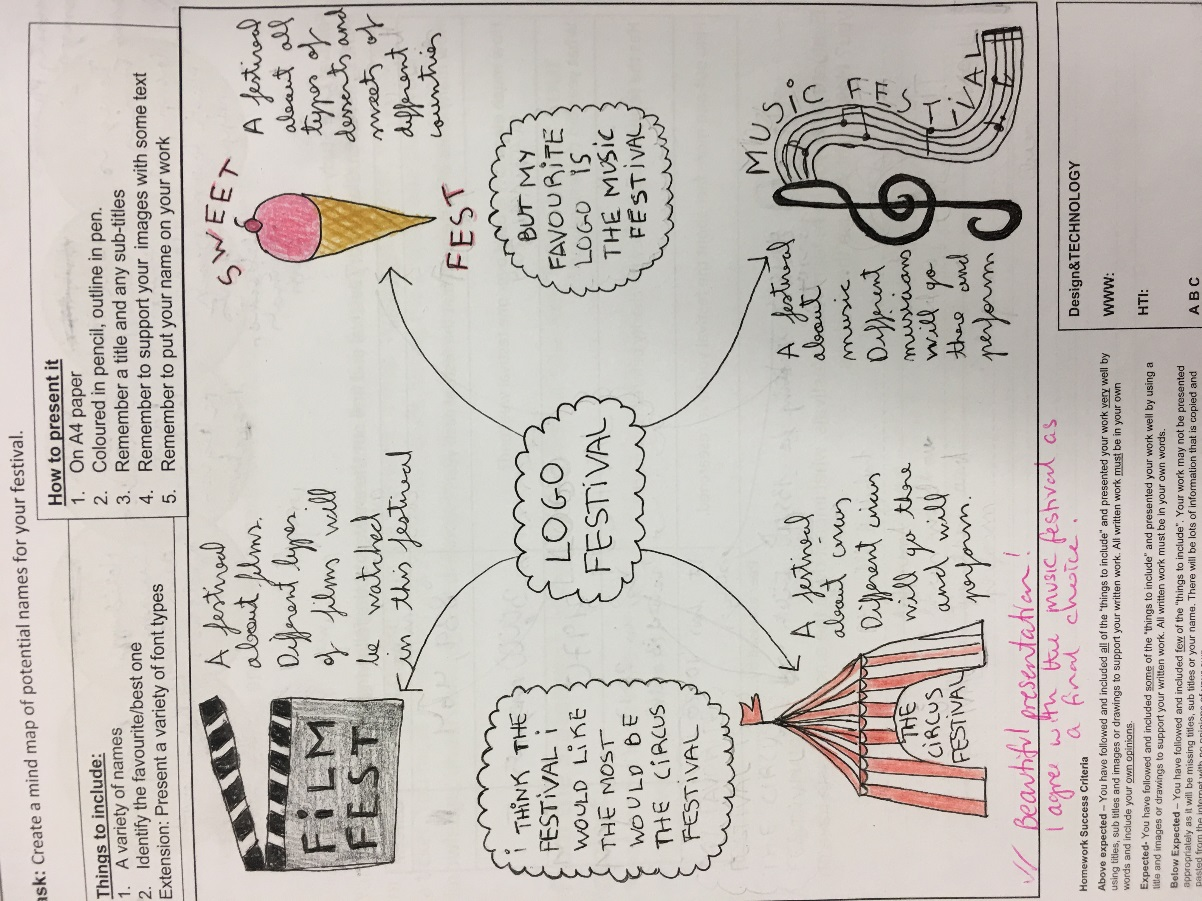 ask: Create a mind map of potential names for your festival.
Things to include:
1. A variety of names
2. Identify the favourite/best one
Extension: Present a variety of font types
How to present it
1. On A4 paper
2. Coloured in pencil, outline in pen.
3. Remember a title and any sub-titles
4. Remember to support your images with some text
5. Remember to put your name on your work
FiLM
FEST
A festival
about films.
Different types
of films will
be watched
in this festival
SWEET
FEST
A festival
about all
types of
desserts and
sweets of
different
countries
i THiNK THE
FESTiVAL i
WOULD LiKE
THE MOST
WOULD BE
THE CiRCUS
FESTiVAL
LOGO
FESTiVAL
BUT MY
FAVOURiTE
LOGO iS
THE MUSiC
FESTiVAL
THE
CiRCUS
FESTiVAL
A festival
about circus
Different circus
will go there
and will
perform.
A festival
about
music
Different
musicians
will go
there and
perform
MUSiC FESTiVAL
Beautiful presentation!
I agree with the music festival as
a final choice.
Homework Success Criteria
Above expected – You have followed and included all of the "things to include" and presented your work very well by
using titles, sub titles and images or drawings to support your written work. All written work must be in your own
words and include your own opinions.
Expected- You have followed and included some of the "things to include" and presented your work well by using a
title and images or drawings to support your written work. All written work must be in your own words.
Below Expected – You have followed, and included few of the "things to include". Your work may not be presented
appropriately as it will be missing titles, sub titles or your name. There will be lots of information that is copied and
Design&TECHNOLOGY
WWW:
HTI:
A B C